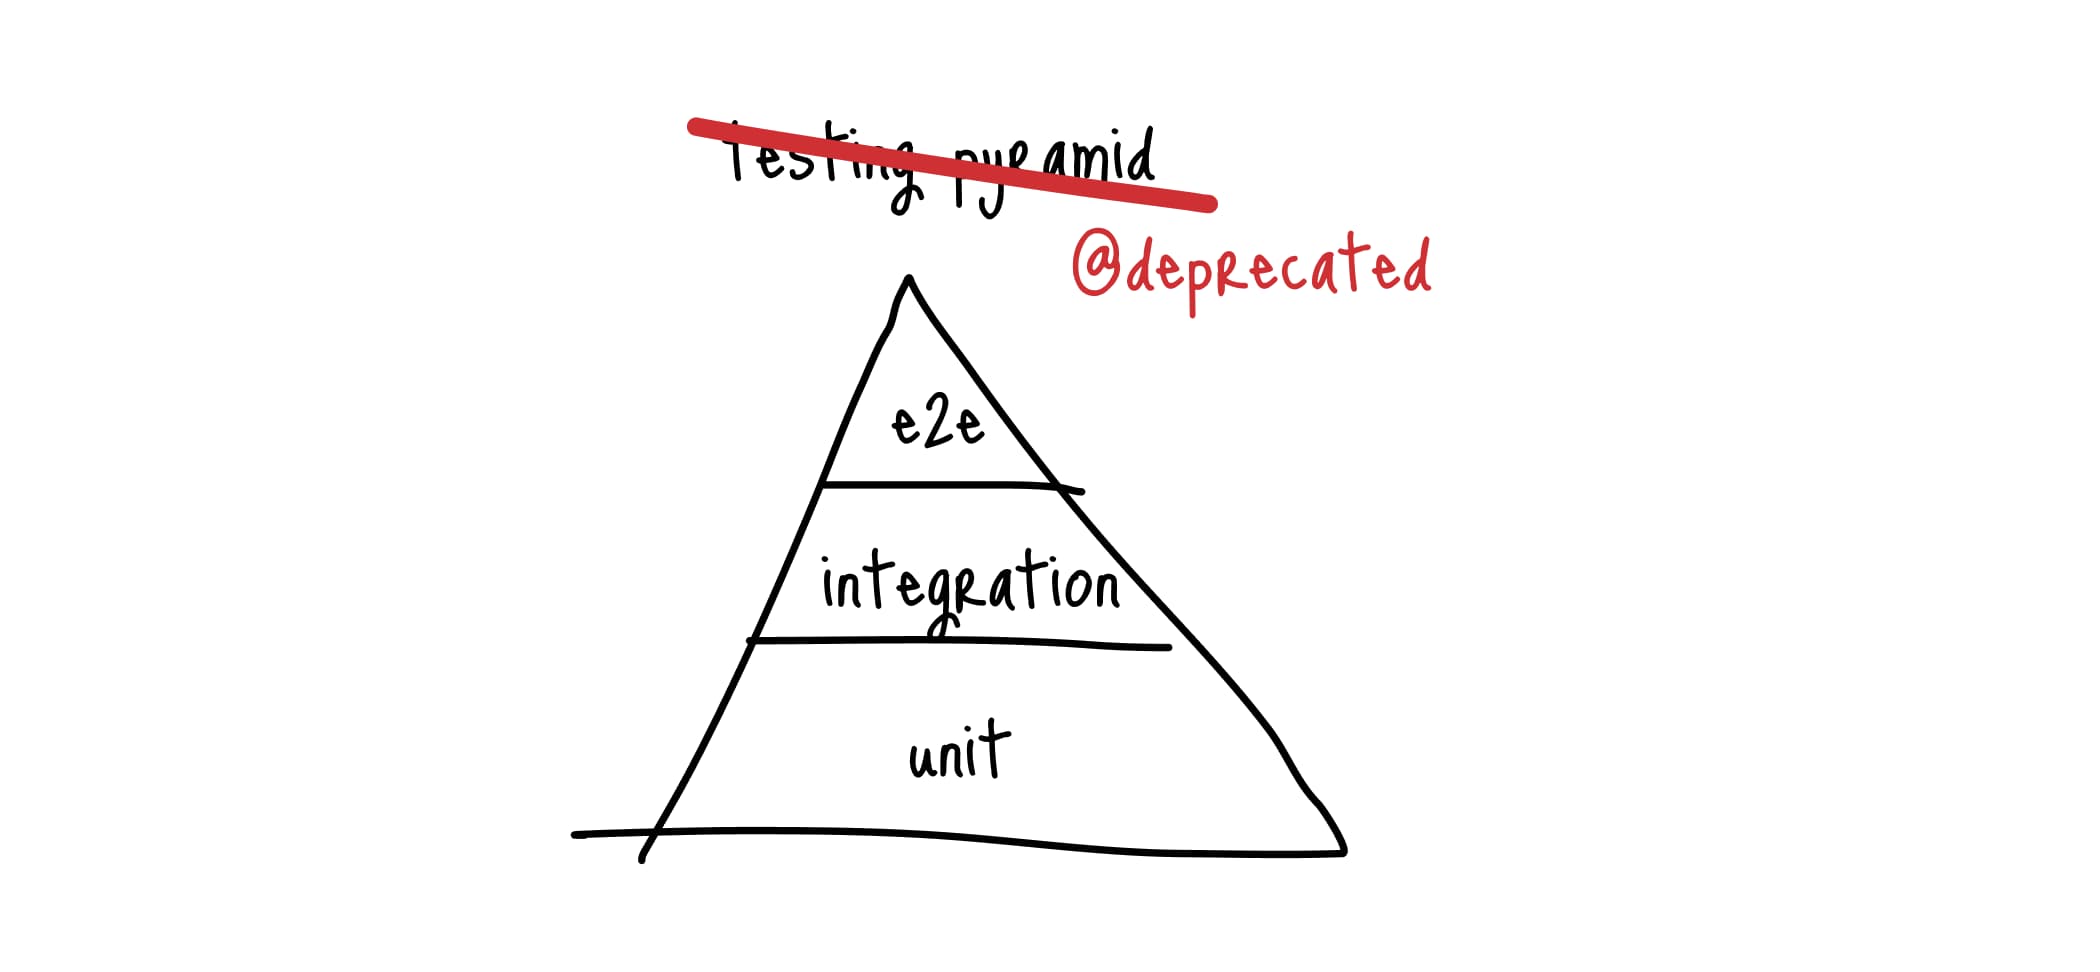 testing pyramid
@deprecated
e2e
integration
unit